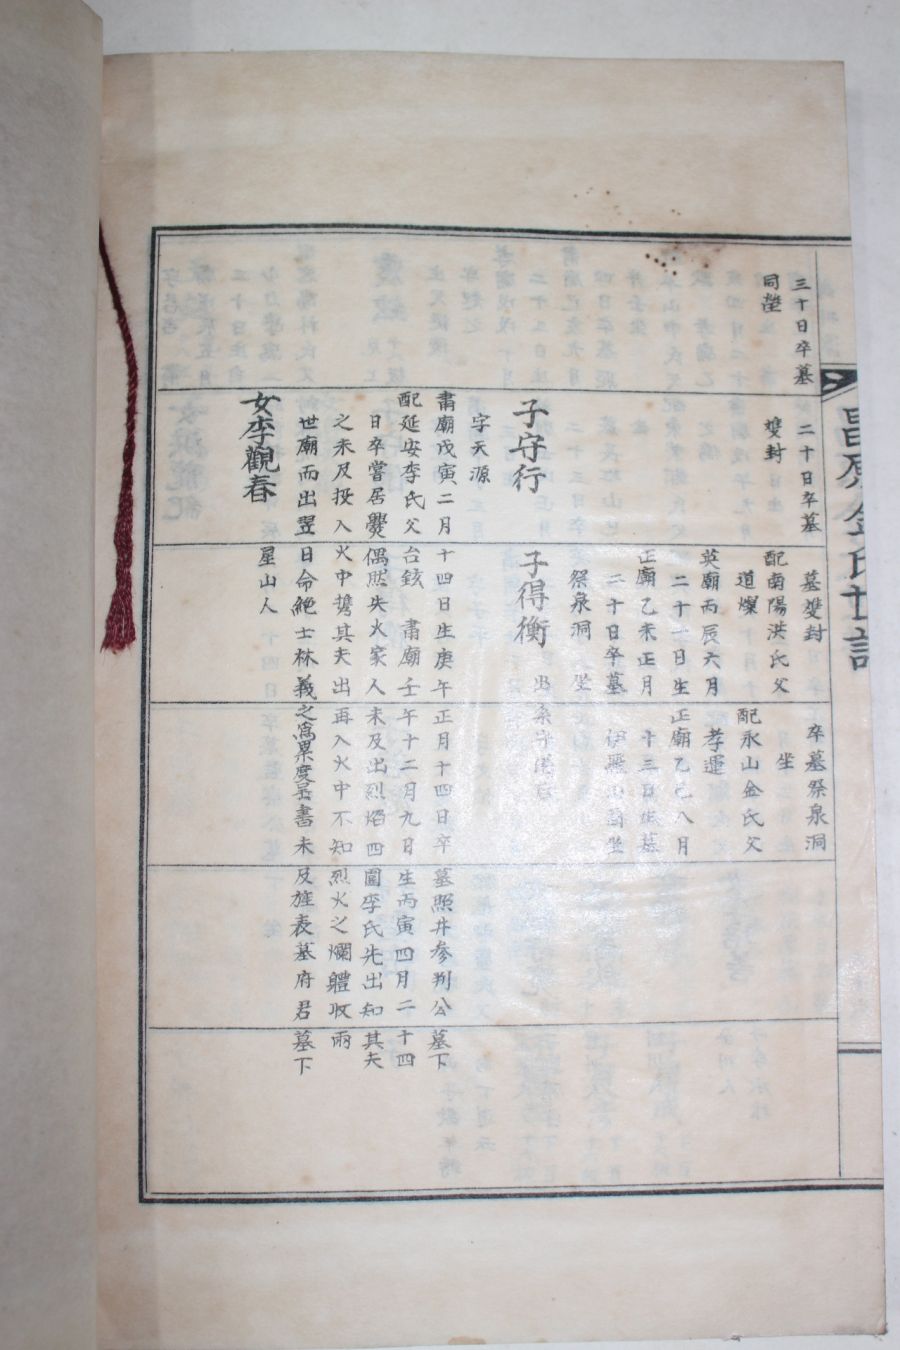 昌原金氏世譜
三十日卒墓
同塋
二十日卒墓
雙封
子守行
字天源
肅廟戊寅二月十四日生庚午正月十四日卒墓照井參判公墓下
配延安李氏父台鉉 肅廟壬午十二月九日生丙寅四月二十四
日卒嘗居爨偶然失火家人未及出烈焰四圍李氏先出知其夫
之未及投入火中擔其夫出再入火中不知烈火之爛體収兩
世廟而出翌日命絶士林義之爲累度呈書未及旌表墓府君墓下
女李觀春 星山人
墓雙封
配南陽洪氏父
道爛
英廟丙辰六月
二十一日生
正廟乙未正月
二十日卒墓
祭泉洞 坐
子得衡 出
卒墓祭泉洞
坐
配永山金氏父
孝運
正廟乙巳八月
十三日 墓